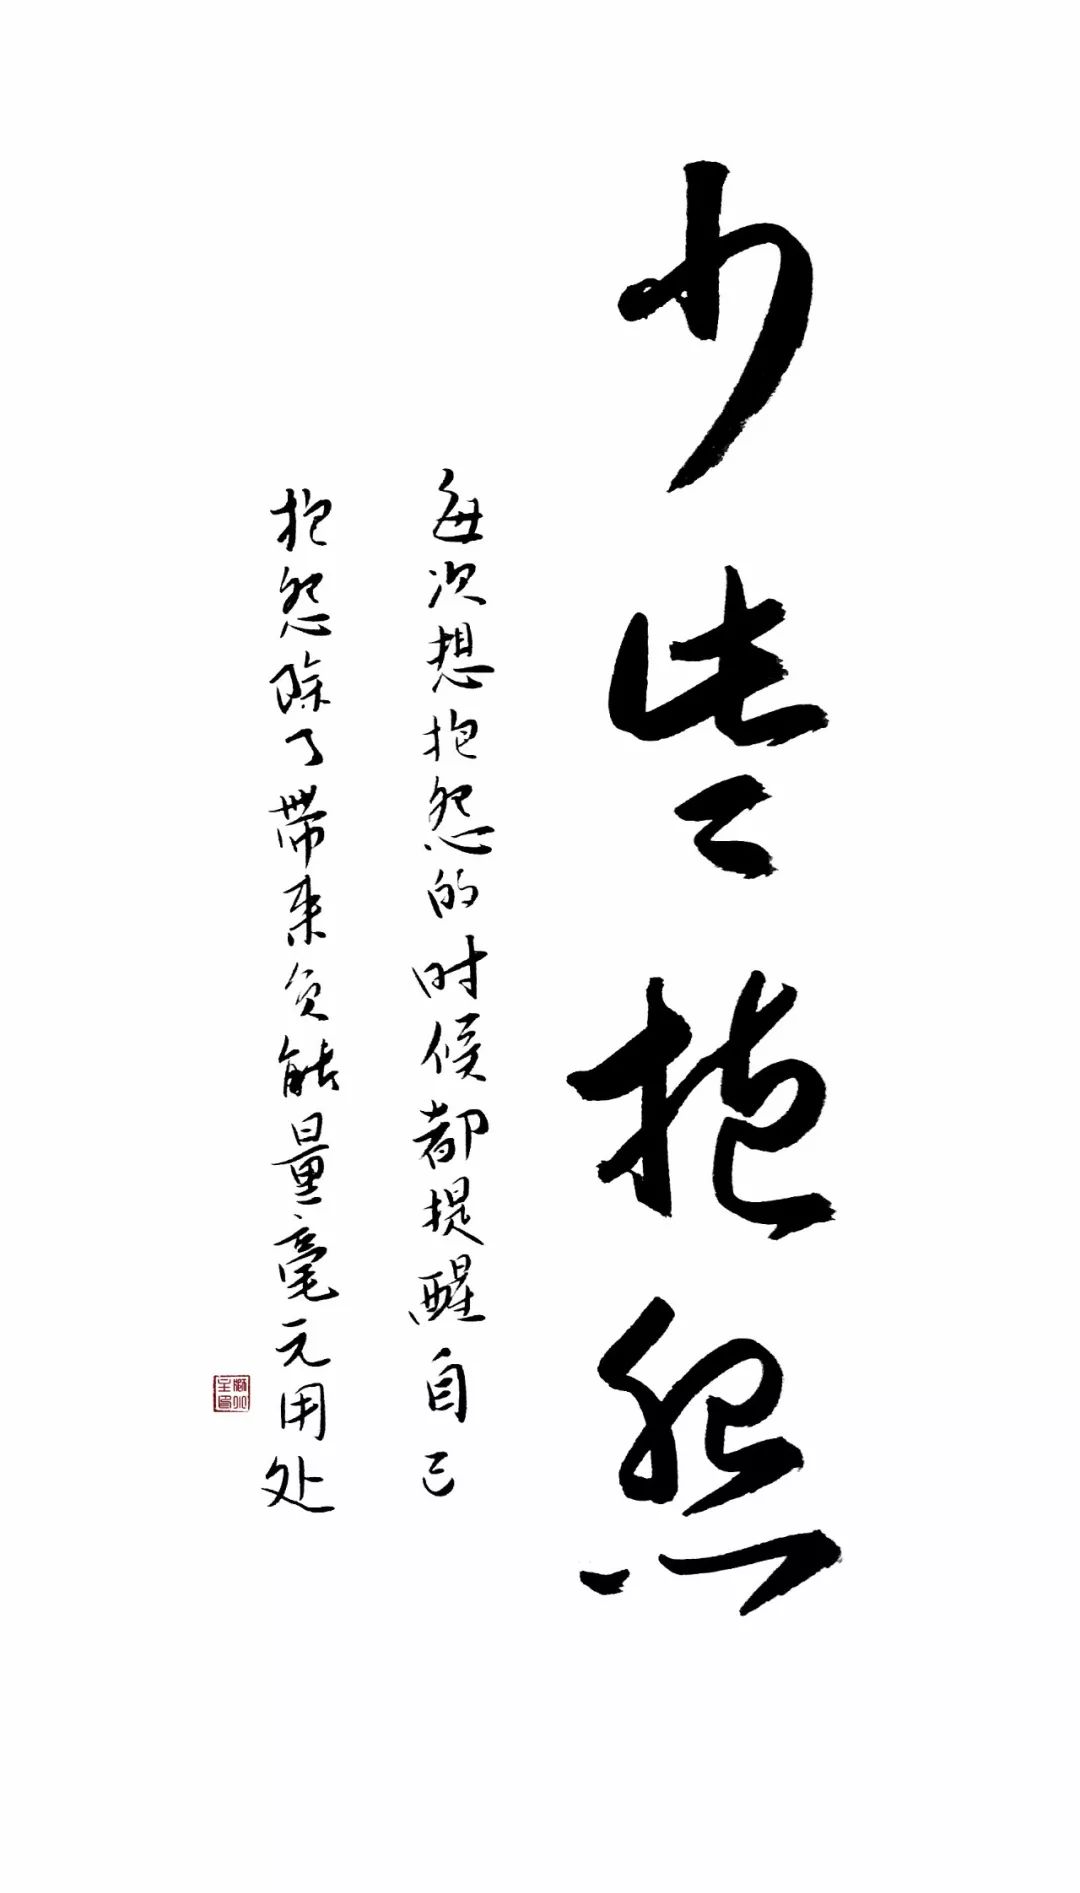 少些抱怨
每次想抱怨的时候都提醒自己
抱怨除了带来负能量毫无用处